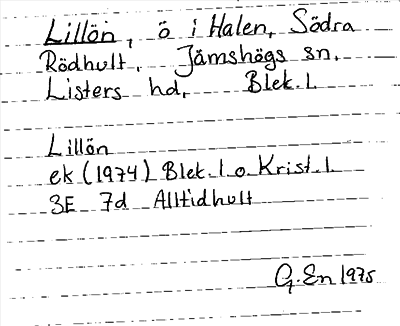 Lillön, ö i Halen, Södra
Rödhult, Jämshögs sn.
Listers hd, Blek. l.
Lillön
ek (1974) Blek. l o. Krist. l.
3E 7d Alltidhult
G. En 1975